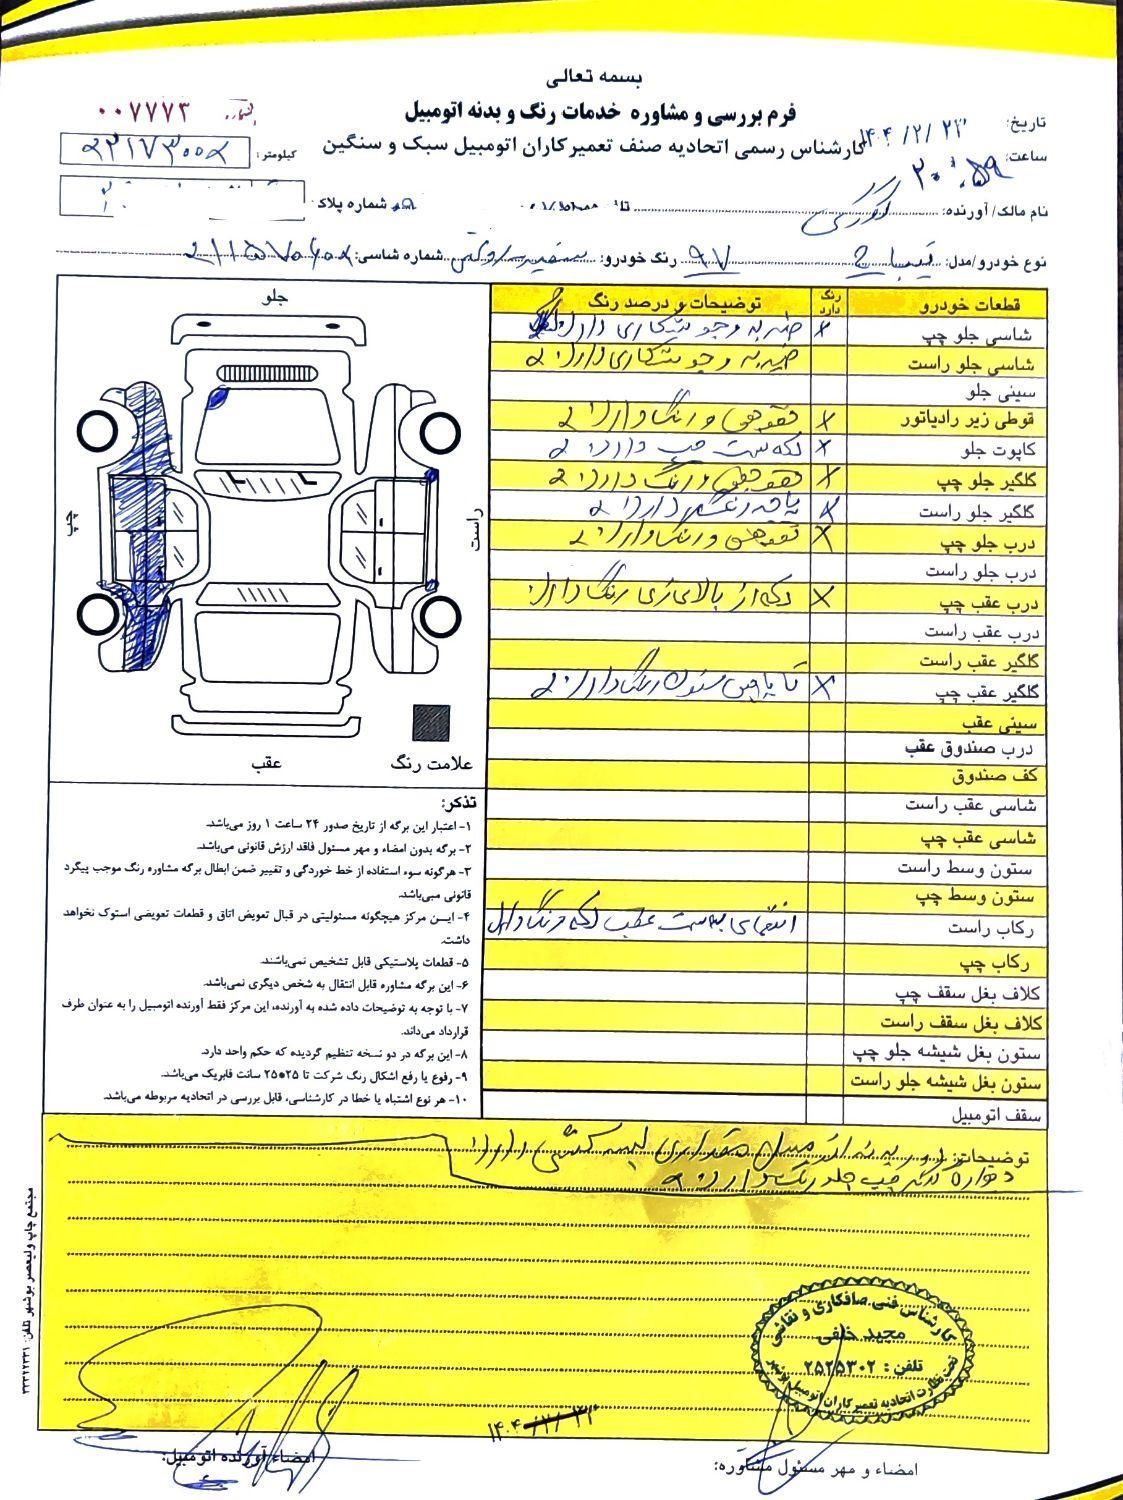 بسمه تعالی
فرم بررسی و مشاوره خدمات رنگ و بدنه اتومبیل
کارشناس رسمی اتحادیه صنف تعمیرکاران اتومبیل سبک و سنگین
۰۰۷۷۷۳
تاریخ: ۱۴۰۴/۲/۲۳
ساعت: ۲۰:۵۹
کیلومتر:
نام مالک/ آورنده:
شماره پلاک
نوع خودرو/مدل: تیبا 2 ۹۷ رنگ خودرو: سفید روغنی شماره شاسی:
جلو
چپ
راست
عقب
علامت رنگ
قطعات خودرو رنگ دارد توضیحات و درصد رنگ
شاسی جلو چپ × ضربه و جوشکاری دارد
شاسی جلو راست ضربه و جوشکاری دارد
سینی جلو
قوطی زیر رادیاتور × تعویض و رنگ دارد
کاپوت جلو × لکه سمت چپ دارد
گلگیر جلو چپ × تعویض و رنگ دارد
گلگیر جلو راست × رنگ دارد
درب جلو چپ × تعویض و رنگ دارد
درب جلو راست
درب عقب چپ × لکه از بالای زی رنگ دارد
درب عقب راست
گلگیر عقب راست
گلگیر عقب چپ × تا پایین ستون رنگ دارد
سینی عقب
درب صندوق عقب
کف صندوق
شاسی عقب راست
شاسی عقب چپ
ستون وسط راست
ستون وسط چپ
رکاب راست انتهای سمت عقب لکه رنگ دارد
رکاب چپ
کلاف بغل سقف چپ
کلاف بغل سقف راست
ستون بغل شیشه جلو چپ
ستون بغل شیشه جلو راست
سقف اتومبیل
تذکر:
۱- اعتبار این برگه از تاریخ صدور ۲۴ ساعت ۱ روز می‌باشد.
۲- برگه بدون امضاء و مهر مسئول فاقد ارزش قانونی می‌باشد.
۳- هرگونه سوء استفاده از خط خوردگی و تغییر ضمن ابطال برگه مشاوره رنگ موجب پیگرد
قانونی می‌باشد.
۴- ایـن مرکز هیچگونه مسئولیتی در قبال تعویض اتاق و قطعات تعویضی استوک نخواهد
داشت.
۵- قطعات پلاستیکی قابل تشخیص نمی‌باشند.
۶- این برگه مشاوره قابل انتقال به شخص دیگری نمی‌باشد.
۷- با توجه به توضیحات داده شده به آورنده، این مرکز فقط آورنده اتومبیل را به عنوان طرف
قرارداد می‌داند.
۸- این برگه در دو نسخه تنظیم گردیده که حکم واحد دارد.
۹- رفوع یا رفع اشکال رنگ شرکت تا ۲۵*۲۵ سانت فابریک می‌باشد.
۱۰- هر نوع اشتباه یا خطا در کارشناسی، قابل بررسی در اتحادیه مربوطه می‌باشد.
توضیحات: دور بدنه اتومبیل مقداری لیسه کشی دارد
دیواره گلگیر چپ جلو رنگ دارد
کارشناس فنی صافکاری و نقاشی
مجید خلفی
تلفن : ۲۵۲۵۳۰۲
تحت نظارت اتحادیه تعمیرکاران اتومبیل بوشهر
امضاء و مهر مسئول مشاوره:
امضاء آورنده اتومبیل:
مجتمع چاپ ولیعصر بوشهر